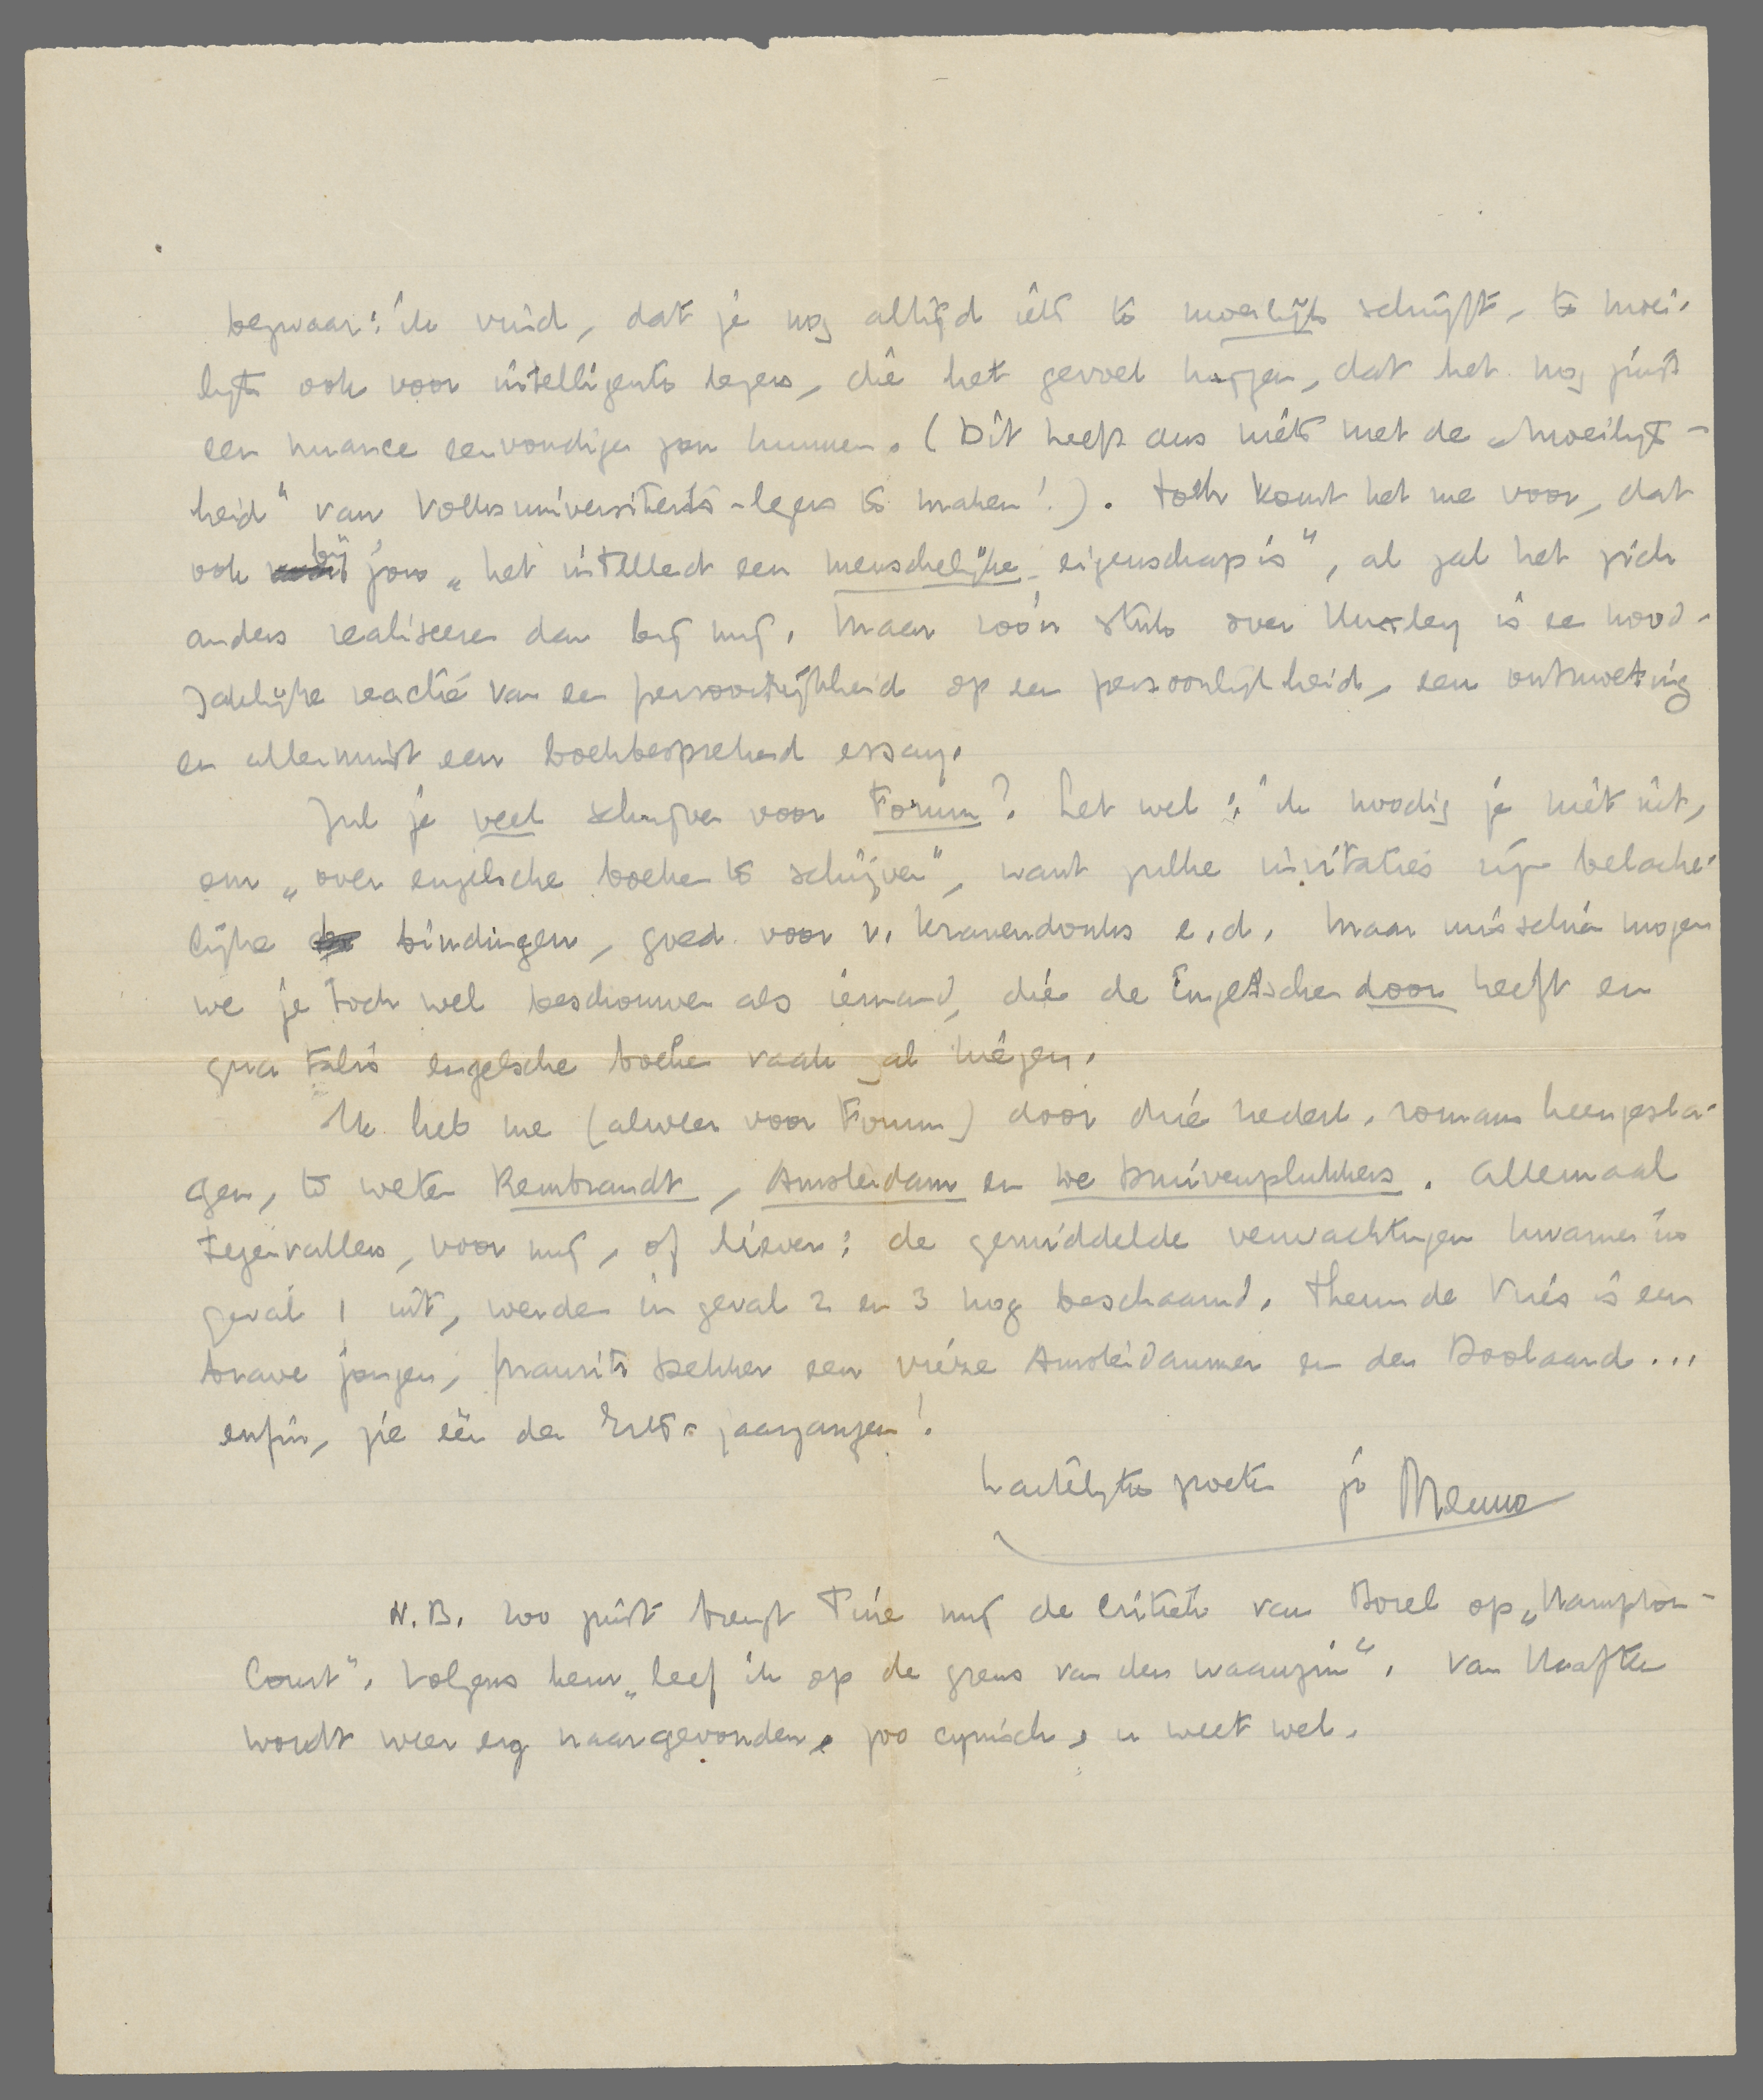 bezwaar: ik vind, dat je nog altijd iets te moeilijk schrijft, te moei-
lijk ook voor intelligente lezers, die het gevoel krijgen, dat het nog juist
een nuance eenvoudiger zou kunnen. (Dit heeft dus niets met de „moeilijk-
heid" van Volksuniversiteits-lezers te maken!). Toch komt het me voor, dat
ook bij jou „het intellect een menschelijke eigenschap is", al zal het zich
anders realiseeren dan bij mij. Maar zoo'n stuk over Huxley is een nood-
zakelijke reactie van een persoonlijkheid op een persoonlijkheid, een ontmoeting
en allerminst een boekbesprekend essay.
Zul je veel schrijven voor Forum? Let wel: ik noodig je niet uit,
om „over engelsche boeken te schrijven", want zulke invitaties zijn belache-
lijke bindingen, goed voor v. Kranendonks e.d. Maar misschien mogen
we je toch wel beschouwen als iemand, die de Engelschen door heeft en
qua talis engelsche boeken vaak zal kiezen.
Ik heb me (alweer voor Forum) door drie nederl. romans heengesla-
gen, te weten Rembrandt, Amsterdam en De Druivenplukkers. Allemaal
tegenvallers, voor mij, of liever: de gemiddelde verwachtingen kwamen in
geval 1 uit, werden in geval 2 en 3 nog beschaamd. Theun de Vries is een
brave jongen, Maurits Dekker een vieze Amsterdammer en den Doolaard...
enfin, zie één der Erts-jaargangen!
Hartelijke groeten je Menno
N.B. Zoo juist brengt Tine mij de critiek van Borel op „Hampton-
Court". Volgens hem „leef ik op de grens van den waanzin". Van Haaften
wordt weer erg naar gevonden, zoo cynisch, u weet wel.